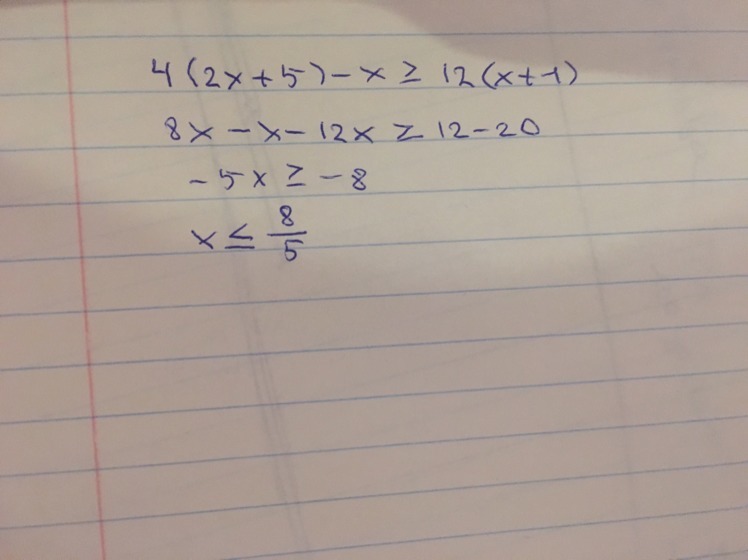 4(2x+5)-x ≥ 12(x+1)
8x-x-12x ≥ 12-20
-5x ≥ -8
x ≤ 8/5